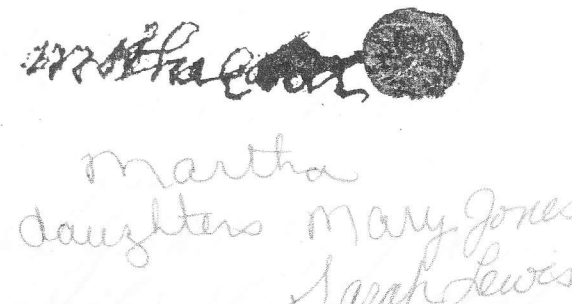 Martha
daughters Mary Jones
Sarah Lewis